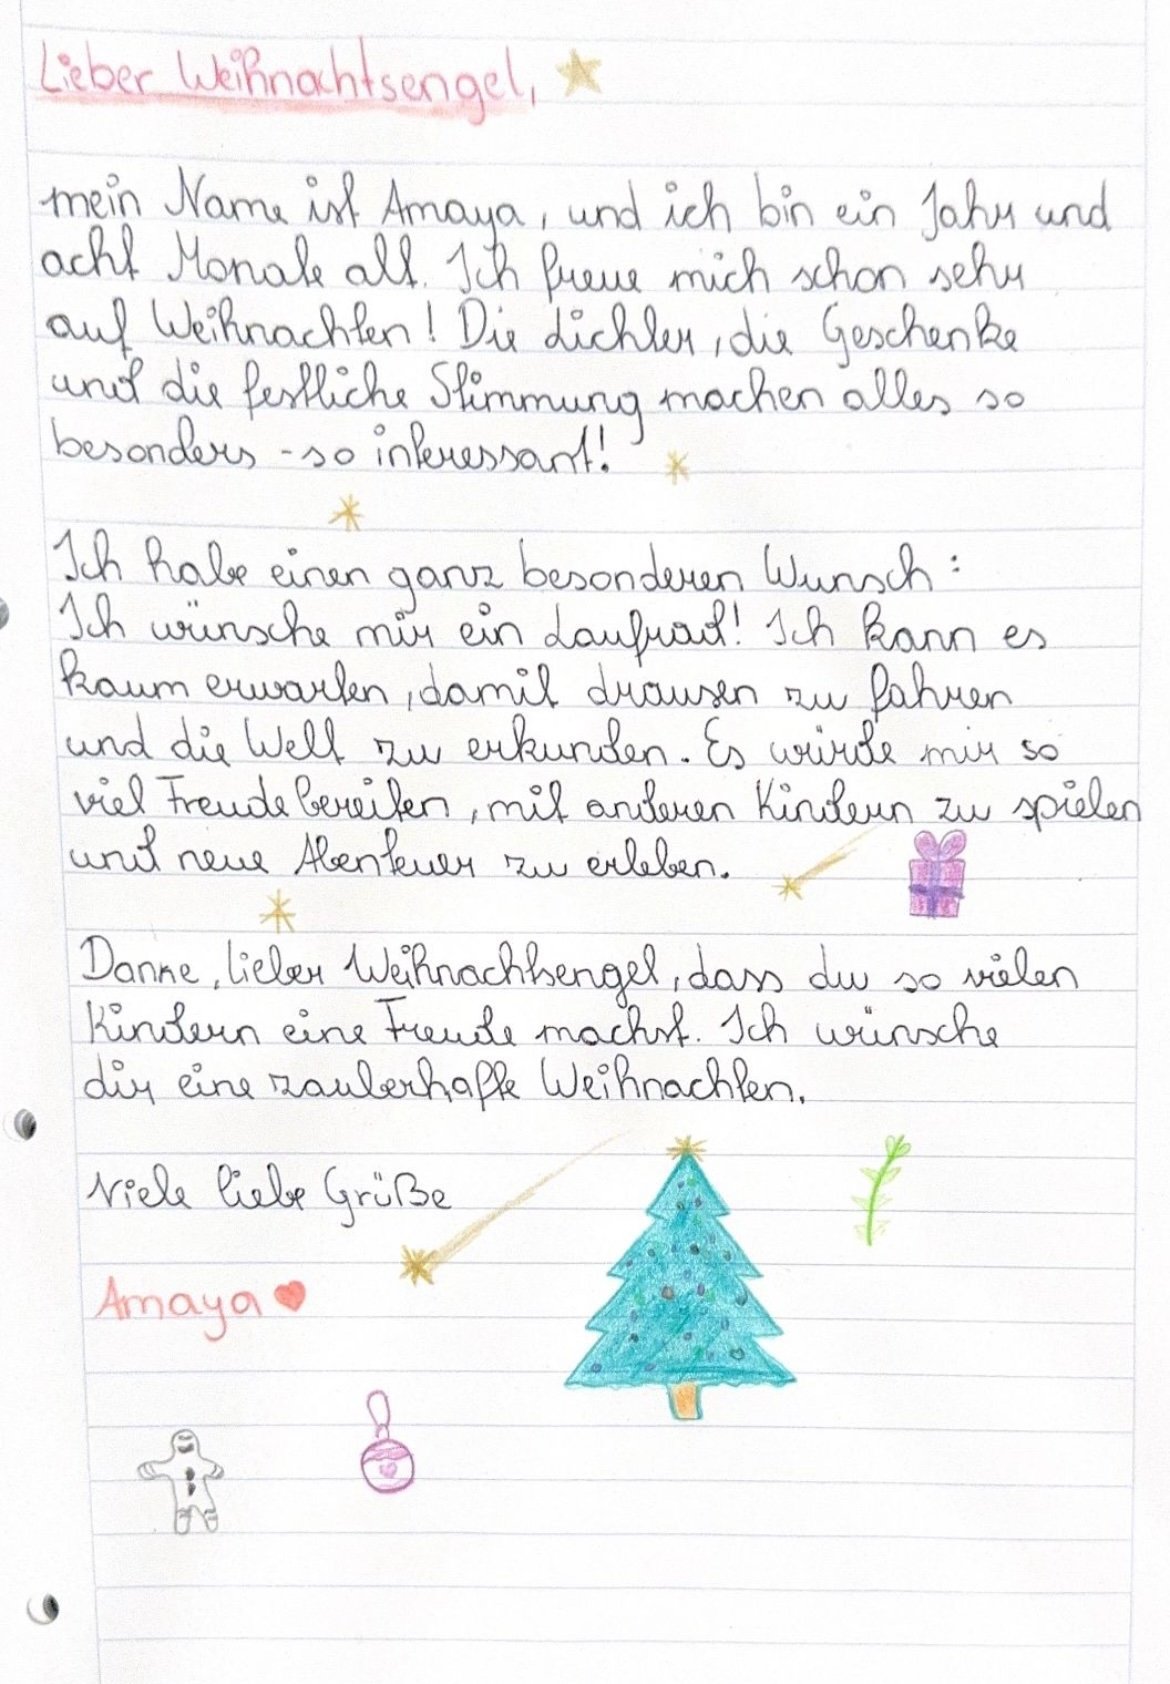 Lieber Weihnachtsengel,
mein Name ist Amaya, und ich bin ein Jahr und
acht Monate alt. Ich freue mich schon sehr
auf Weihnachten! Die Lichter, die Geschenke
und die festliche Stimmung machen alles so
besonders - so interessant!
Ich habe einen ganz besonderen Wunsch:
Ich wünsche mir ein Laufrad! Ich kann es
kaum erwarten, damit drausen zu fahren
und die Welt zu erkunden. Es würde mir so
viel Freude bereiten, mit anderen Kindern zu spielen
und neue Abenteuer zu erleben.
Danke, lieber Weihnachtsengel, dass du so vielen
Kindern eine Freude machst. Ich wünsche
dir eine zauberhafte Weihnachten.
Viele liebe Grüße
Amaya